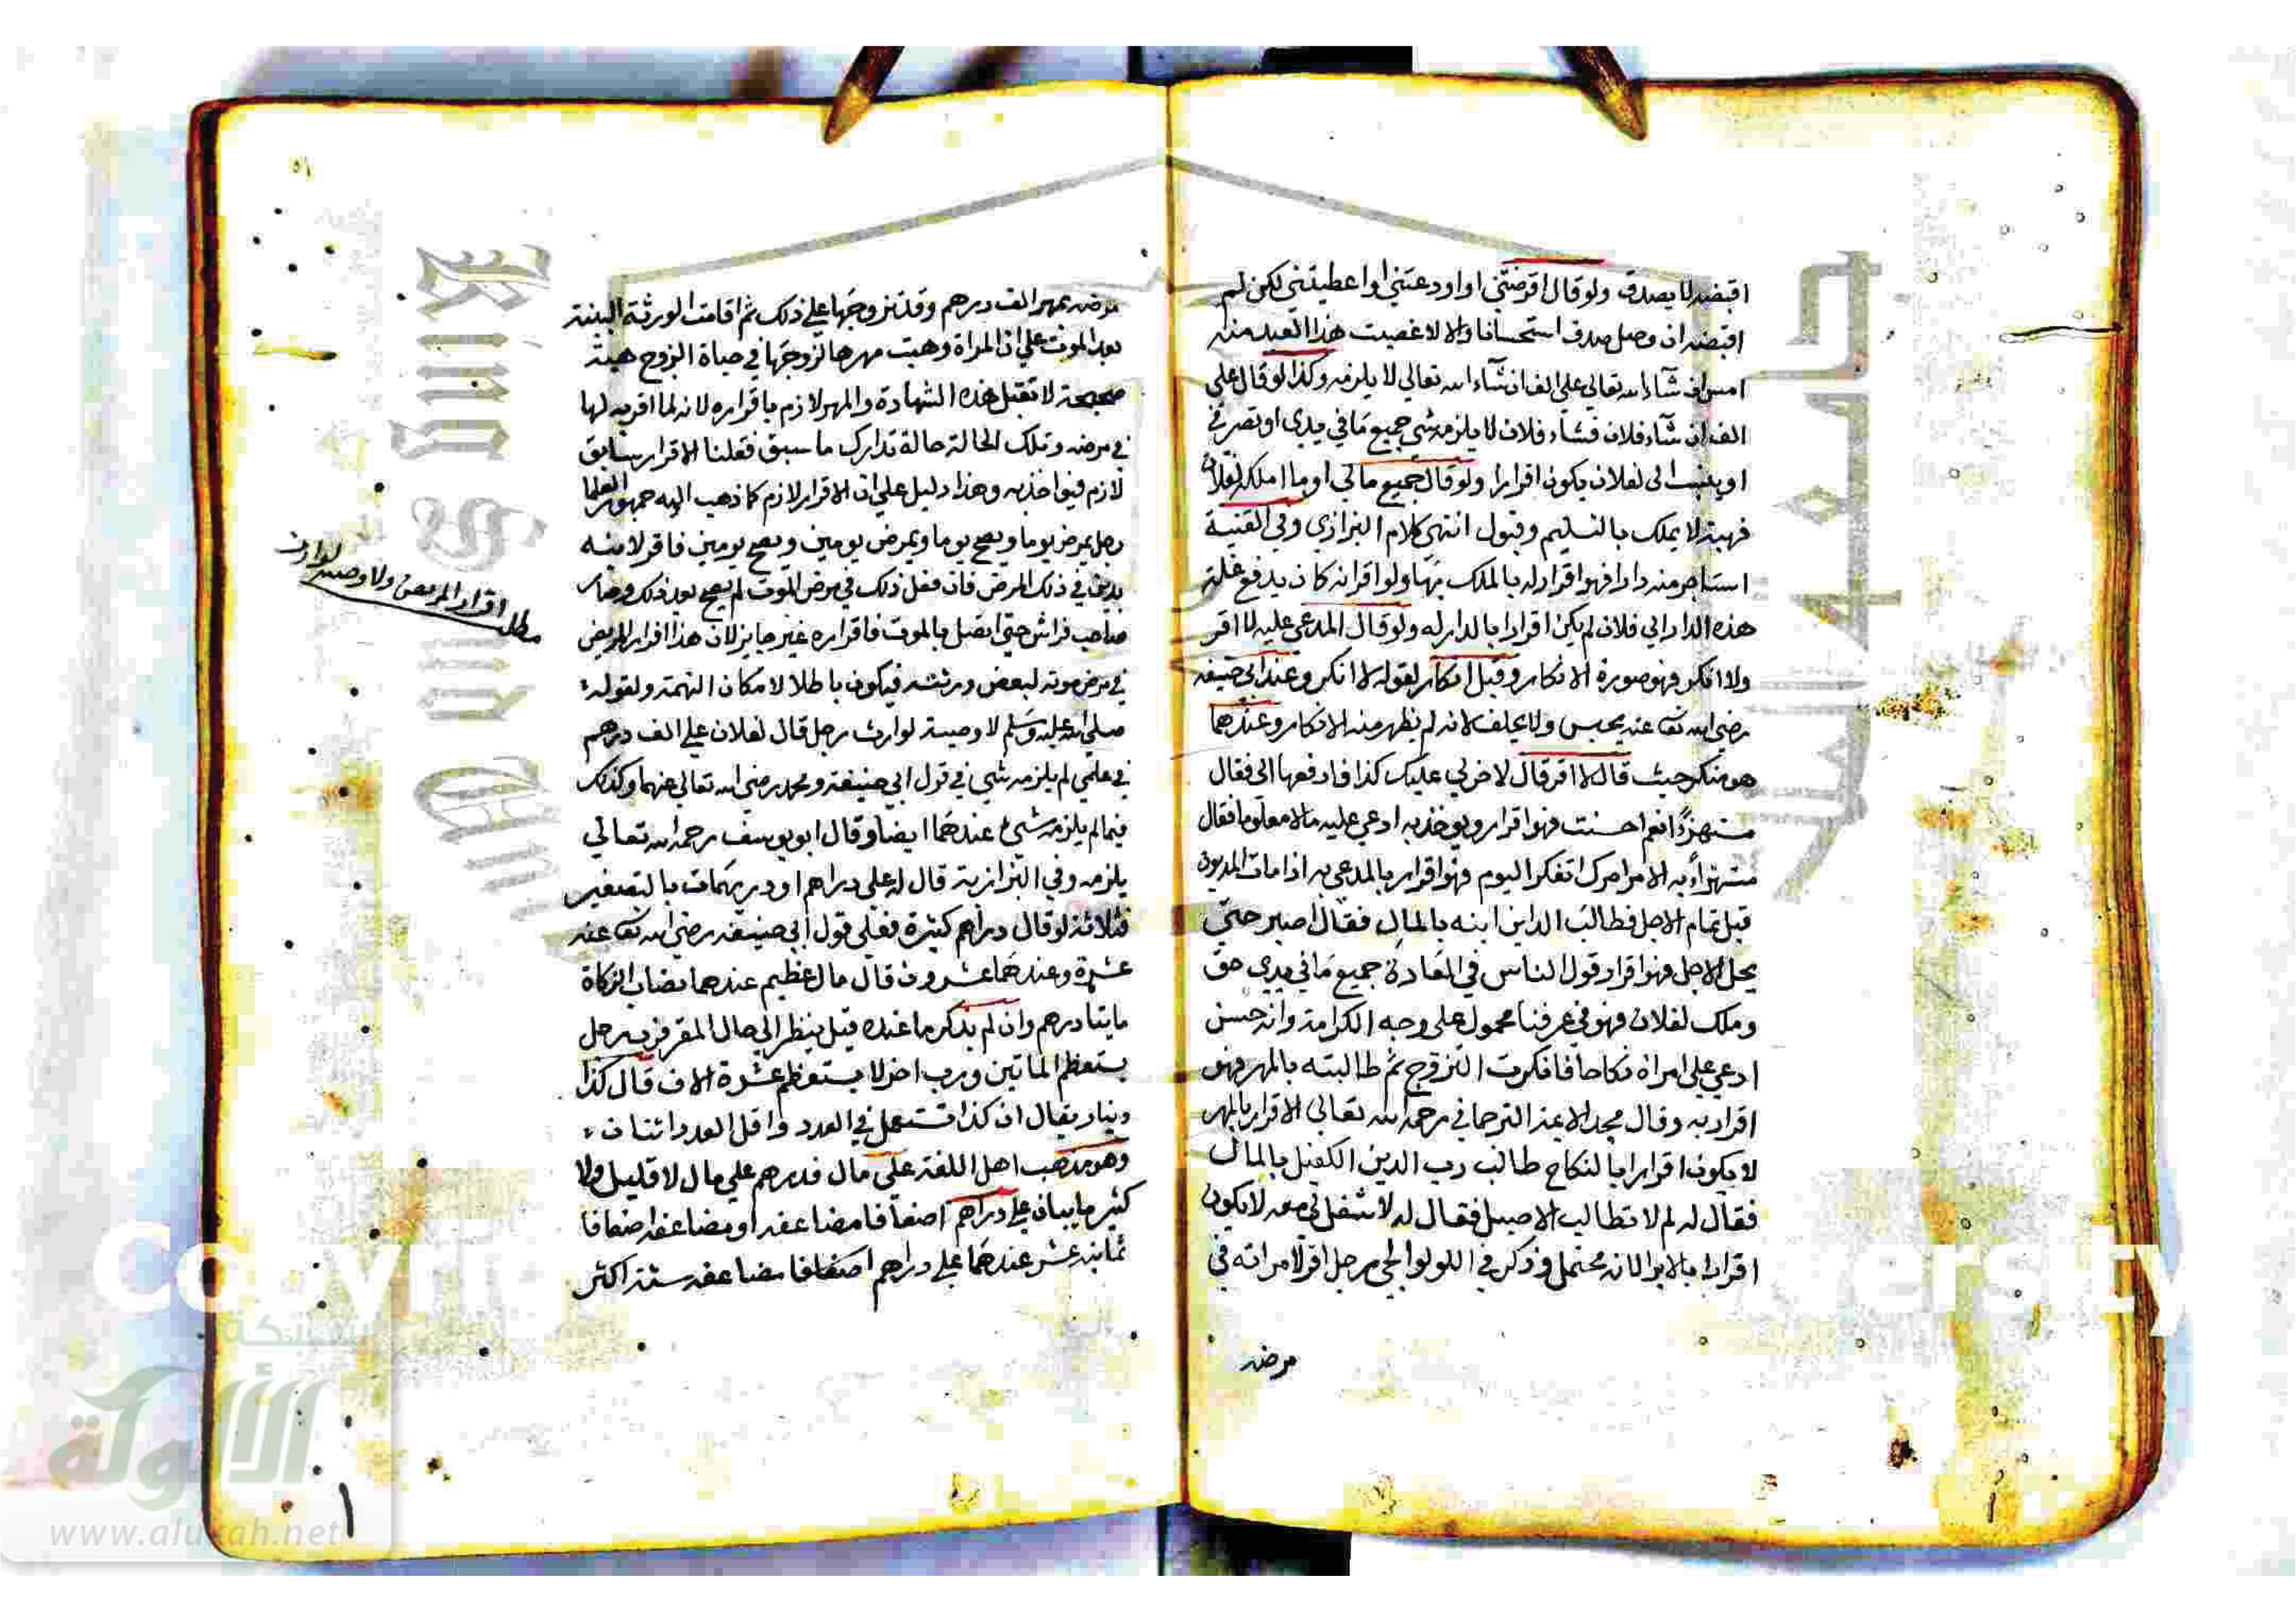 اقبضه لا يصدق ولو قال اقرضتني او اودعتني او اعطيتني لكن لم
اقبضه ان وصل صدق استحسانا والا لا غصبت هذا العبد منه
امس ان شآء الله تعالى علي الف ان شآء الله تعالى لا يلزمه وكذا لو قال علي
الف ان شآء فلان فشآء فلان لا يلزمه شي جميع مافي يدي او تصرفي
او ينسب الى لفلان يكون اقرارا ولو قال جميع مالي او ما املكه لفلان
فهبة لا يملك بالتسليم وقبول انتهى كلام البزازي وفي القنية
استاجر منه دارا فهو اقرار له بالملك بها ولو اقر انه كان يدفع غلة
هذه الدار الى فلان لم يكن اقرارا بالدار له ولو قال المدعى عليه لا اقر
ولا انكر فهو صورة الانكار وقيل انكار لقوله لا انكر وعند ابي حنيفه
رضي الله تعا عنه يحبس ولا يحلف لانه لم يظهر منه الانكار وعندهما
هو منكر حيث قال لا اقر قال لاخر لي عليك كذا فادفعها الى فقال
مستهزءا نعم احسنت فهو اقرار ويوخذ به ادعى عليه مالا معلوما فقال
مستهزاء به الامر امرك اتفكر اليوم فهو اقرار بالمدعى به اذا مات المديون
قبل تمام الاجل فطالب الداين ابنه بالمال فقال اصبر حتى
يحل الاجل فهو اقرار قول الناس في العادة جميع ما في يدي حق
وملك لفلان فهو في عرفنا محمول على وجه الكرامة وانه حسن
ادعى على امراة نكاحا فانكرت التزوج ثم طالبته بالمهر فهو
اقرار به وقال مجد الائمة الترجماني رحمه الله تعالى الاقرار بالمهر
لا يكون اقرارا بالنكاح طالب رب الدين الكفيل بالمال
فقال له لم لا تطالب الاصيل فقال له لا شغل لي معه لا يكون
اقرارا بالابرا لانه محتمل وذكر في اللولوالجي رجل اقر لامراته في
مرضه
٥١
مرضه بمهر الف درهم وقد تزوجها على ذلك ثم اقامت الورثة البينة
بعد الموت على ان المراة وهبت مهرها لزوجها في حياة الزوج هبة
صحيحة لا تقبل هذه الشهادة والمهر لازم باقراره لانه لما اقر به لها
في مرضه وتلك الحالة حالة تدارك ما سبق فقلنا الاقرار سابق
لازم فيواخذ به وهذا دليل على ان الاقرار لازم كما ذهب اليه جمهور العلما
رجل يمرض يوما ويصح يوما ويمرض يومين ويصح يومين فاقر لابنه
بدين في ذلك المرض فان فعل ذلك في مرض الموت لم يصح بعد ذلك وصار
صاحب فراش حتى اتصل بالموت فاقراره غير جايز لان هذا اقرار المريض
في مرض موته لبعض ورثته فيكون باطلا لامكان التهمة ولقوله
صلى الله عليه وسلم لا وصية لوارث رجل قال لفلان علي الف درهم
في علمي لم يلزمه شي في قول ابي حنيفة ومحمد رضي الله تعالى عنهما وكذلك
فيما لم يلزمه شيء عندهما ايضا وقال ابو يوسف رحمه الله تعالى
يلزمه وفي البزازية قال له علي دراهم او دريهمات بالتصغير
فثلاثة لو قال دراهم كثيرة فعلى قول ابي حنيفه رضي الله تعا عنه
عشرة وعندهما عشرون قال مال عظيم عندهما نصاب الزكاة
مايتا درهم وان لم يذكر ما عنده قيل ينظر الى حال المقر فرب رجل
يستعظم المأتين ورب اخر لا يستعظم عشرة الاف قال كذا
دينار يقال ان كذا تستعمل في العدد واقل العدد اثنان
وهو مذهب اهل اللغة علي مال فدرهم علي مال لا قليل ولا
كثير مايتان علي دراهم اضعافا مضاعفه او مضاعفه اضعافا
ثمانية عشر عندهما علي دراهم اضعافا مضاعفه ستة اكثر
مطلب اقرار المريض ولا وصية لوارث
شبكة
الألوكة
www.alukah.net